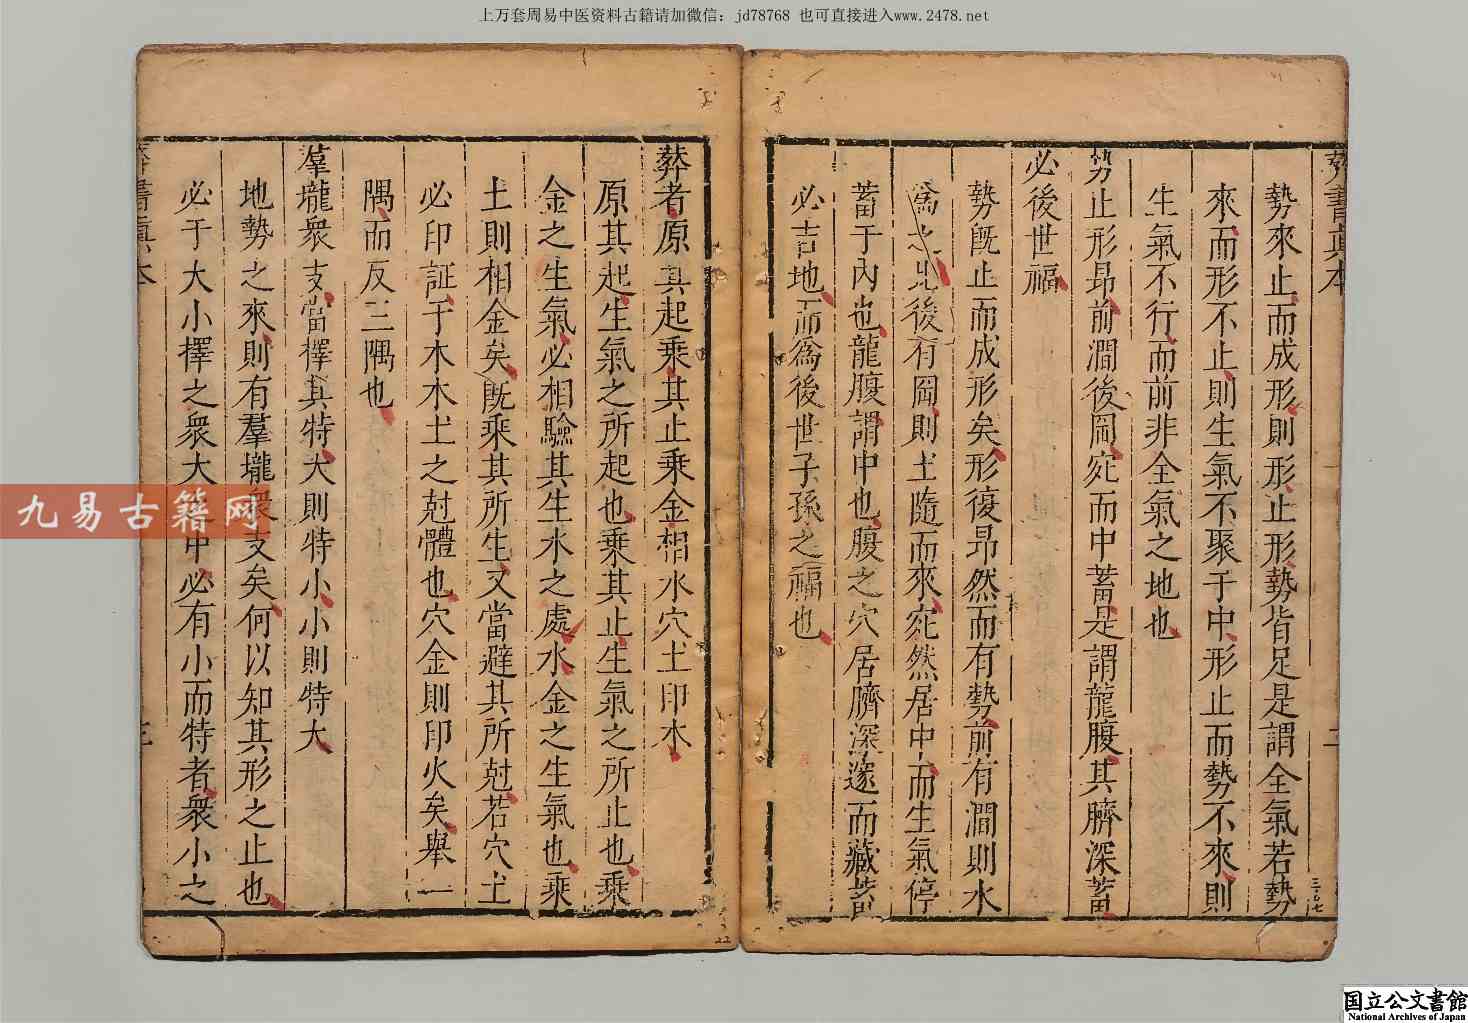 上万套周易中医资料古籍请加微信：jd78768 也可直接进入www.2478.net
葬書眞本
勢來止而成形則形止形勢皆足是謂全氣若勢
來而形不止則生氣不聚于中形止而勢不來則
生氣不行而前非全氣之地也
势止形昻前澗後岡宛而中蓄是謂龍腹其臍深蓄
必後世福
勢旣止而成形矣形復昻然而有勢前有澗則水
爲之止後有岡則土隨而來宛然居中而生氣停
蓄于內也龍腹謂中也腹之穴居臍深邃而藏蓄
必吉地而爲後世子孫之福也
二
三百七
葬者原其起乘其止乘金相水穴土印木
原其起生氣之所起也乘其止生氣之所止也乘
金之生氣必相驗其生水之處水金之生氣也乘
土則相金矣旣乘其所生又當避其所尅若穴土
必印証于木木土之尅體也穴金則印火矣舉一
隅而反三隅也
羣壠衆支當擇其特大則特小小則特大
地勢之來則有羣壠衆支矣何以知其形之止也
必于大小擇之衆大之中必有小而特者衆小之
葬書眞本
三
22
九易古籍网
国立公文書館
National Archives of Japan